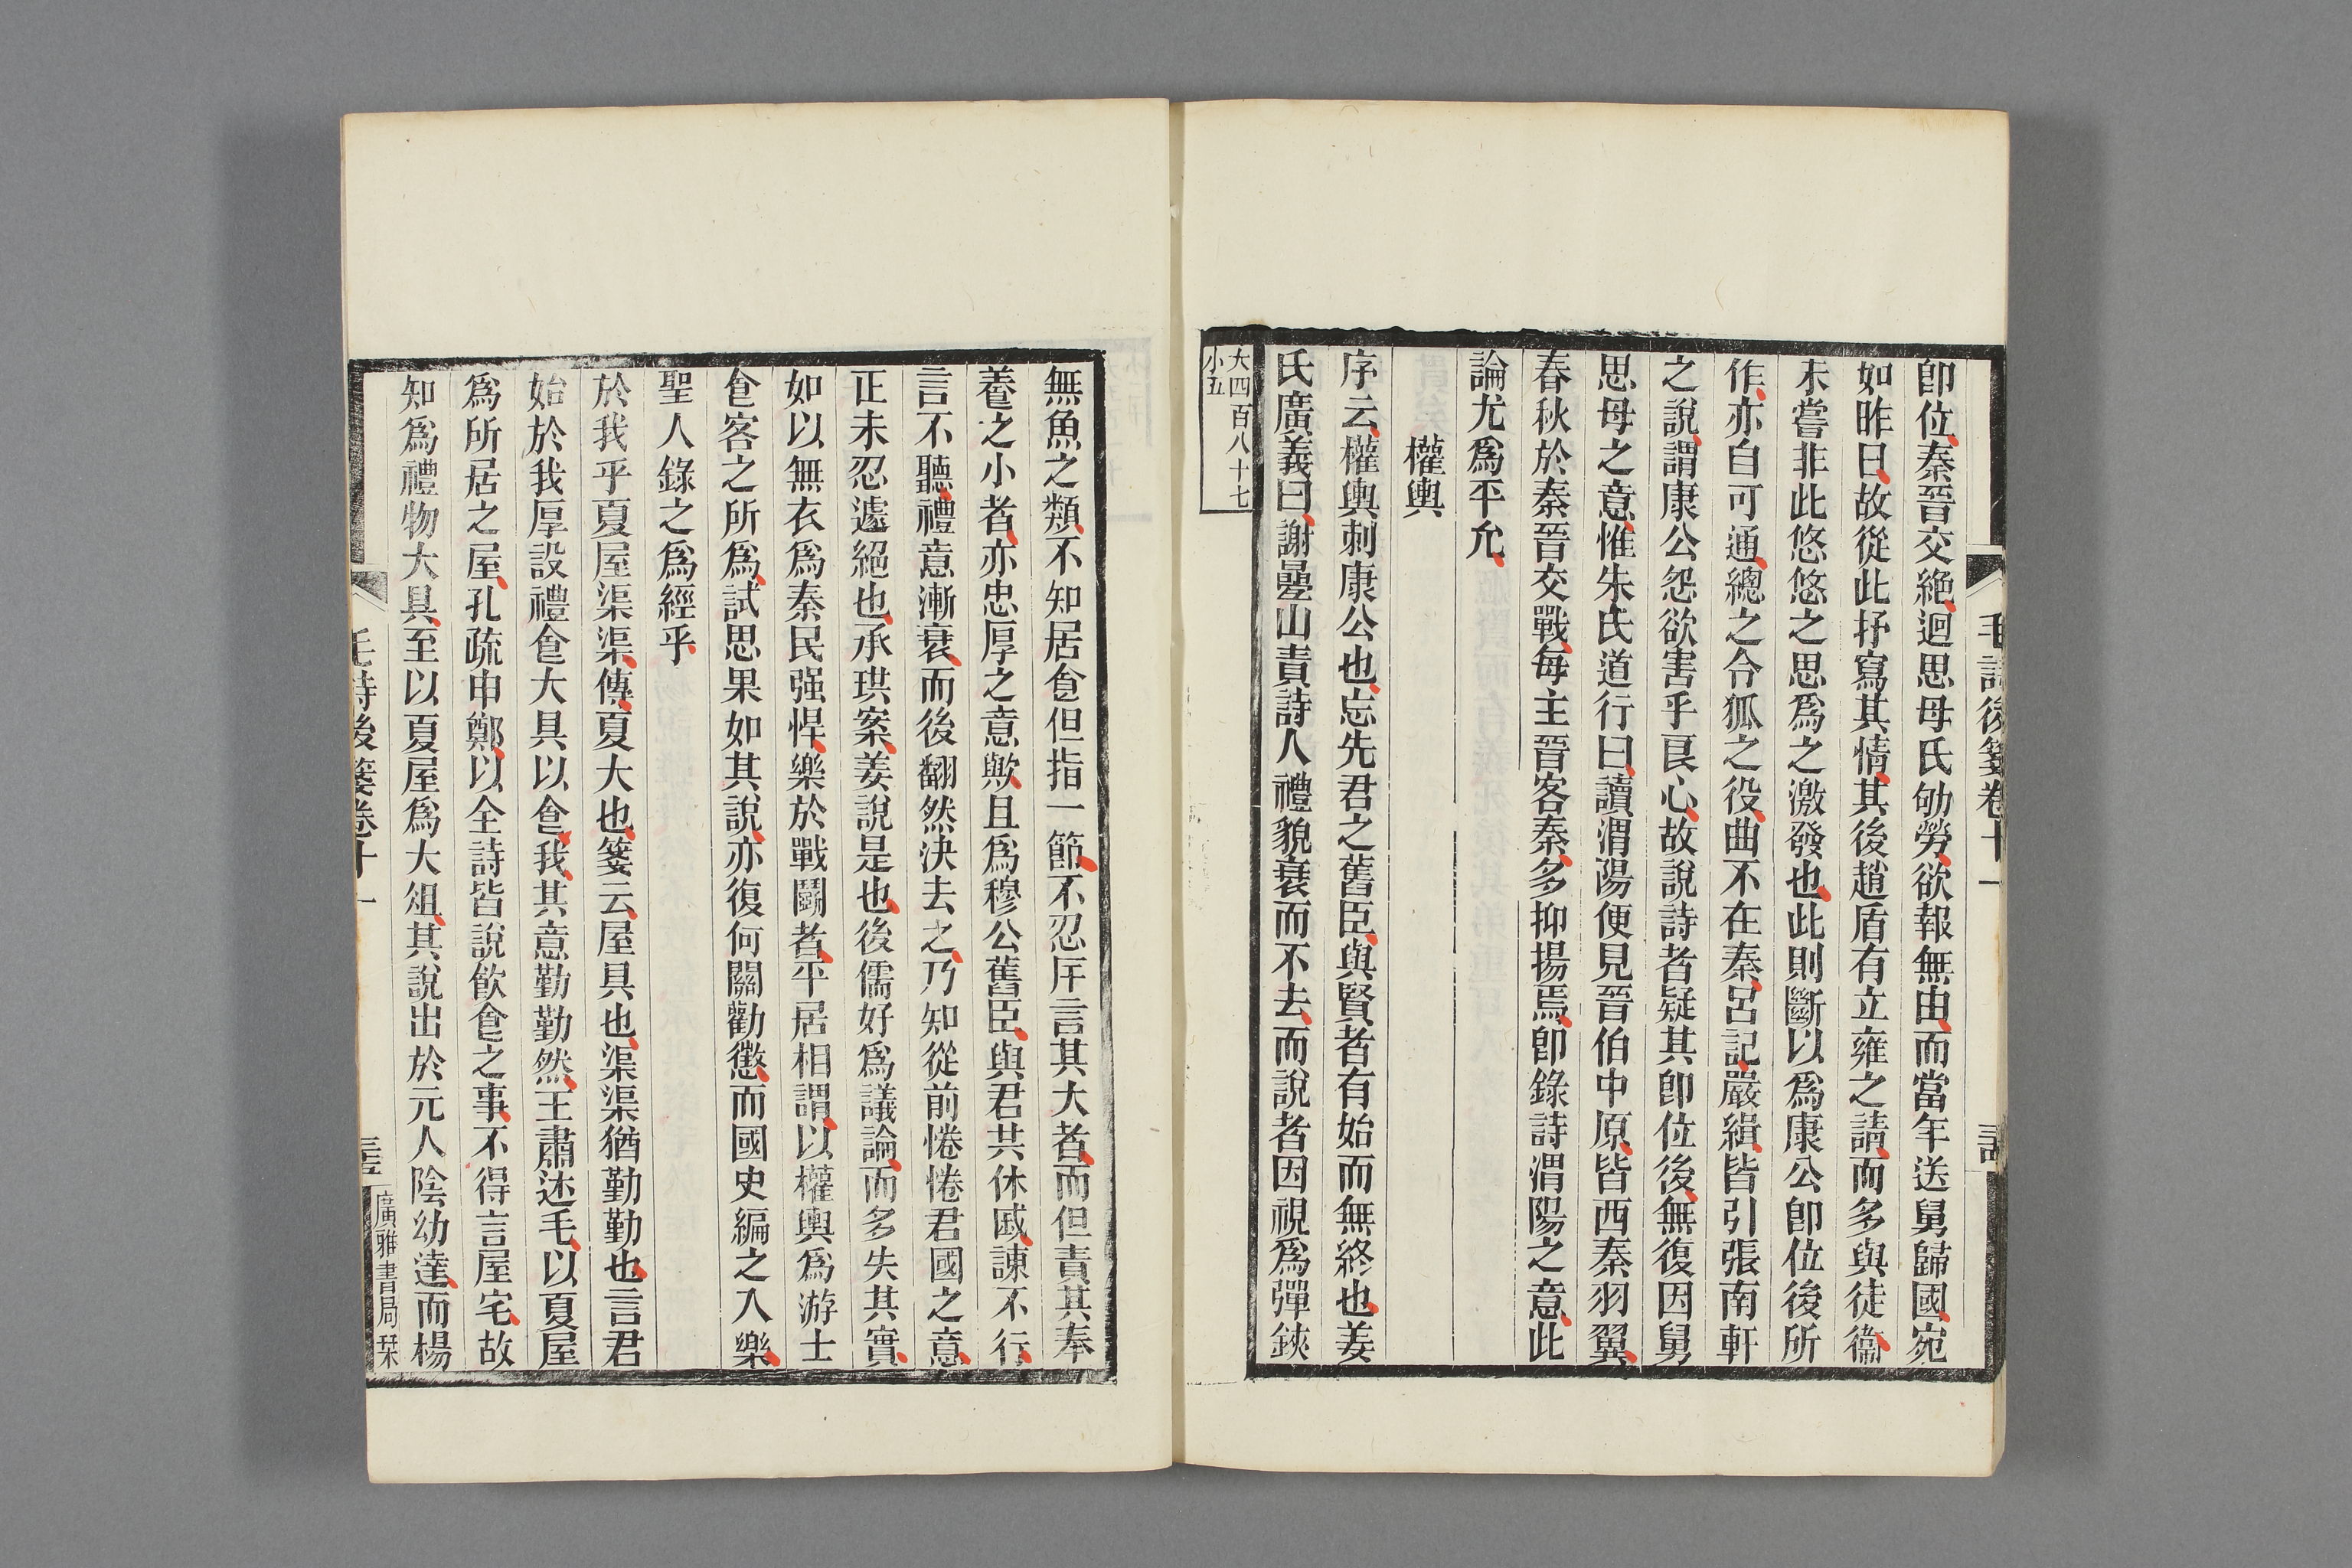 毛詩後箋卷十一
卽位秦晉交絶迴思母氏劬勞欲報無由而當年送舅歸國宛
如昨日故從此抒寫其情其後趙盾有立雍之請而多與徒衞
未嘗非此悠悠之思爲之激發也此則斷以爲康公卽位後所
作亦自可通總之令狐之役曲不在秦呂記嚴緝皆引張南軒
之說謂康公怨欲害乎良心故說詩者疑其卽位後無復因舅
思母之意惟朱氏道行曰讀渭陽便見晉伯中原皆西秦羽翼
春秋於秦晉交戰每主晉客秦多抑揚焉卽錄詩渭陽之意此
論尤爲平允
權輿
序云權輿刺康公也忘先君之舊臣與賢者有始而無終也姜
氏廣義曰謝疊山責詩人禮貌衰而不去而說者因視爲彈鋏
大四百八十七
小五
無魚之類不知居食但指一節不忍斥言其大者而但責其奉
養之小者亦忠厚之意歟且爲穆公舊臣與君共休戚諫不行
言不聽禮意漸衰而後翻然決去之乃知從前惓惓君國之意
正未忍遽絕也承珙案姜說是也後儒好爲議論而多失其實
如以無衣爲秦民强悍樂於戰鬭者平居相謂以權輿爲游士
食客之所爲試思果如其說亦復何關勸懲而國史編之入樂
聖人錄之爲經乎
於我乎夏屋渠渠傳夏大也箋云屋具也渠渠猶勤勤也言君
始於我厚設禮食大具以食我其意勤勤然王肅述毛以夏屋
爲所居之屋孔疏申鄭以全詩皆說飮食之事不得言屋宅故
知爲禮物大具至以夏屋爲大俎其說出於元人陰幼達而楊
毛詩後箋卷十一
三五
廣雅書局栞